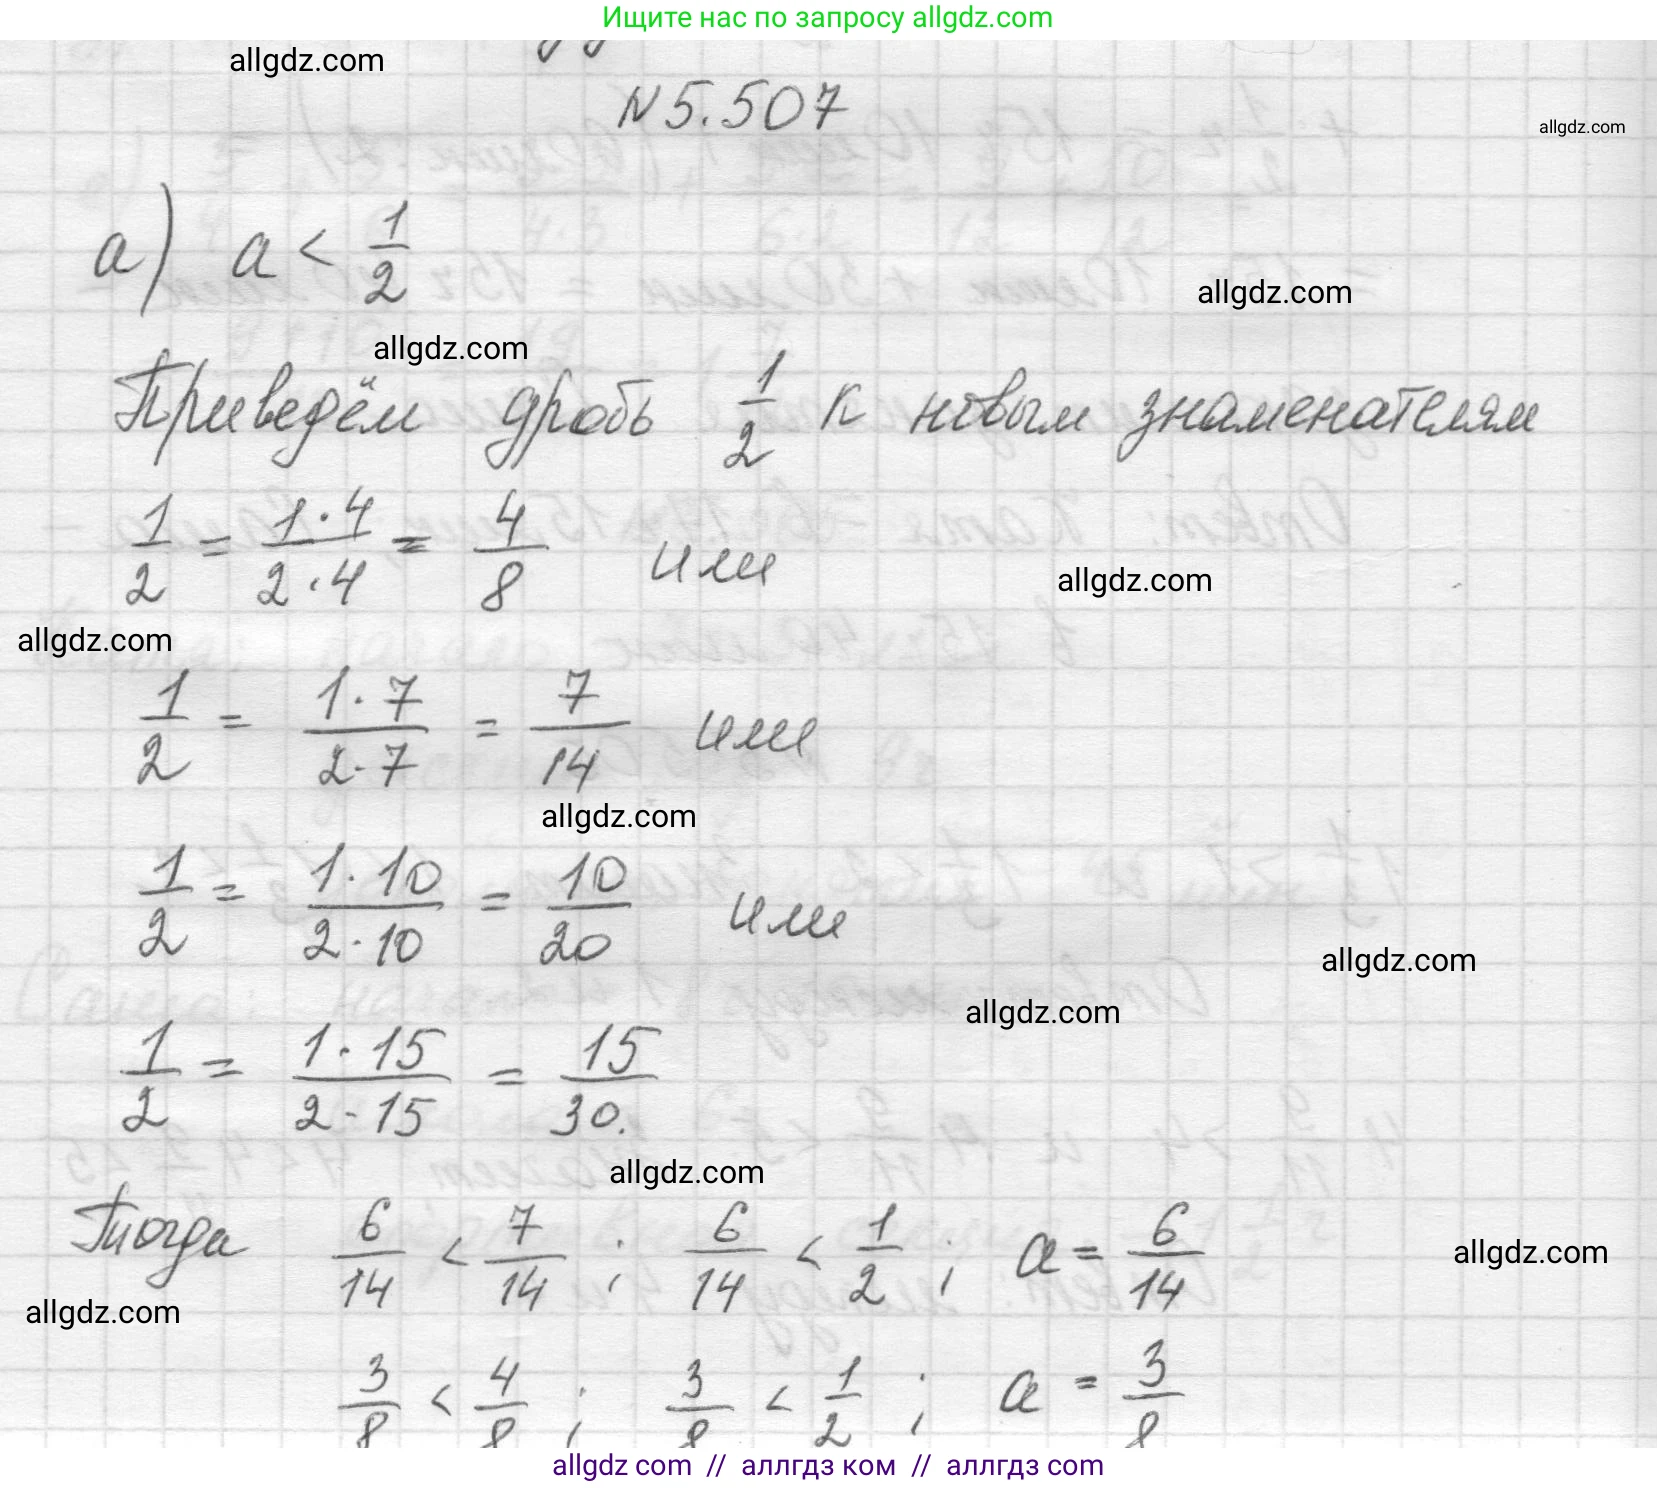 Ищите нас по запросу allgdz.com
allgdz.com
N5.507
allgdz.com
а) a < 1/2
allgdz.com
allgdz.com
Приведём дробь 1/2 к новым знаменателям
1/2 = 1·4/2·4 = 4/8 или
allgdz.com
allgdz.com
1/2 = 1·7/2·7 = 7/14 или
allgdz.com
1/2 = 1·10/2·10 = 10/20 или
allgdz.com
allgdz.com
1/2 = 1·15/2·15 = 15/30.
allgdz.com
Тогда 6/14 < 7/14 ; 6/14 < 1/2 ; a = 6/14
allgdz.com
allgdz.com
3/8 < 4/8 ; 3/8 < 1/2 ; a = 3/8
allgdz com // аллгдз ком // аллгдз com